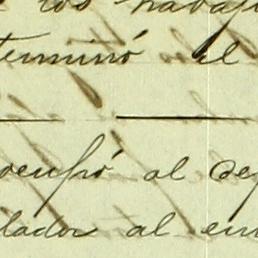 los trabaj
terminó el
ocupó al se
lador al em